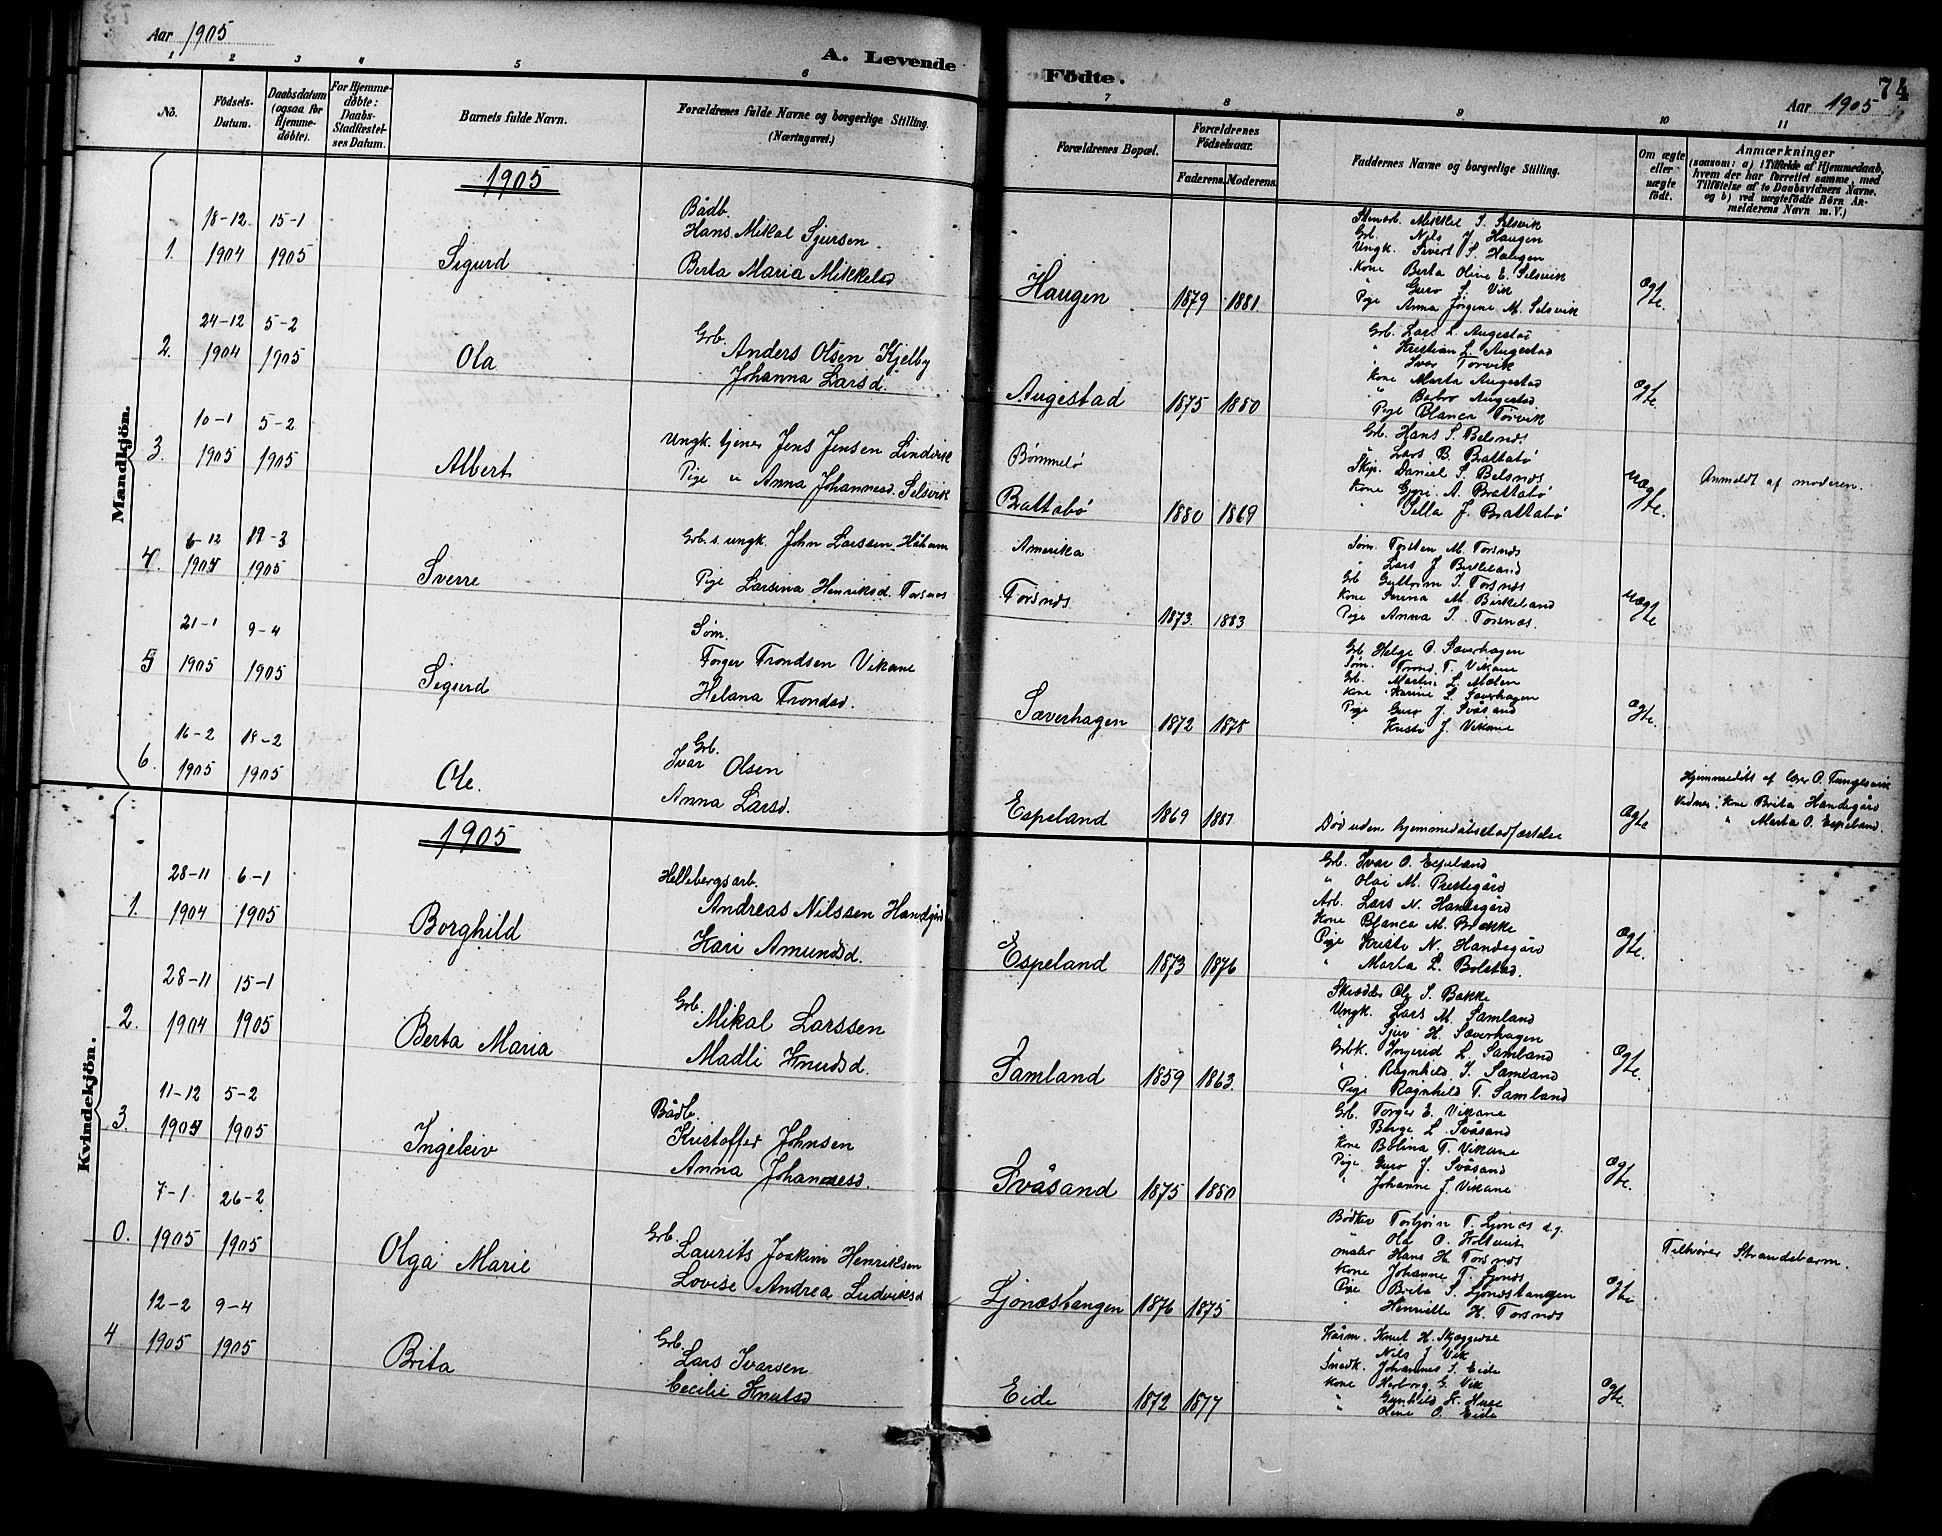 Aar 1905
A. Levende Fødte.
74
Aar 1905
1 2 3 4 5 6 7 8 9 10 11
No.
Fødsels-
Datum.
Daabsdatum
(ogsaa for
Hjemme-
døbte).
For Hjemme-
døbte:
Daabs-
Stadfæstel-
ses Datum.
Barnets fulde Navn.
Forældrenes fulde Navne og borgerlige Stilling.
(Næringsvei.)
Forældrenes Bopæl.
Forældrenes
Fødselsaar.
Faderens. Moderens.
Faddernes Navne og borgerlige Stilling.
Om ægte
eller
uægte
født.
Anmærkninger
(saasom: a) i Tilfælde af Hjemmedaab,
hvem der har forrettet samme, med
Tilføielse af to Daabsvidners Navne,
og b) ved uægtefødte Børn An-
melderens Navn m. V.)
Mandkjøn.
1905
1.
18-12 15-1
1904 1905
Sigurd
Bådb.
Hans Mikal Sjursen.
Berta Maria Mikkelsd
Haugen 1879 1881.
Mikkel S. Selsvik
Grb. Nils J. Haugen
Ungk. Sivert S. Haugen
Kone Berta Oline E. Selsvik
" Guro S. Vik
Pige Anna Jørgine M. Selsvik
Ægte.
2.
24-12 5-2
1904 1905
Ola
Grb.
Anders Olsen Kjelby
Johanna Larsd.
Augestad 1875 1880
Grb. Lars L. Augestad
" Kristian L. Augestad
" Ivar Torvik
Kone Marta Augestad
" Barbro Augestad
Pige Blanca Torvik
Ægte.
3.
10-1 5-2
1905 1905
Albert
Ungk. tjener Jens Jensen Lindvik
Pige " Anna Johannesd. Selsvik
Bømmelø
Brattabø 1880 1869
Grb. Hans S. Belsnes
" Lars B. Brattabø
Skip. Daniel S. Belsnes
Kone Gyri A. Brattabø
" Sella J. Brattabø
Uægte.
Anmeldt af moderen.
4.
6-12 19-3
1904 1905
Sverre
Grb. s. ungk. John Larssen
Pige Larsina Henriksd. Torsnes
Amerika
Torsnes. 1873. 1883
Søm. Torsten M. Torsnes
" Lars J. Birkeland
Grb Guttorm I. Torsnes
Kone Serina M. Birkeland
Pige Anna I. Torsnæs.
Uægte
5
21-1 9-4
1905 1905
Sigurd
Søm.
Torger Trondsen Vikane
Helana Trondsd.
Sæverhagen 1872 1878
Grb Helge O. Sæverhagen
Søm. Trond T. Vikane
Grb. Martin L. Molen
Kone Karine S. Sæverhagen
Pige Guro J. Svåsand
Kristi J. Vikane
Ægte.
6.
16-2 18-2
1905 1905
Ole.
Grb.
Ivar Olsen
Anna Larsd.
Espeland 1869 1881
Død uden hjemmedåbsstadfæstelse
Ægte
Hjemmedøbt af lærer O. Tungesvik
Vidner: Kone Brita Handegård
" Marta O. Espeland.
Kvindekjøn.
1905
1.
28-11 6-1
1904 1905
Borghild
Hellebergsarb.
Andreas Nilssen Handegård
Kari Amundsd.
Espeland 1873 1876
Grb. Ivar O. Espeland
" Olai M. Prestegård
Arb. Lars N. Handegård
Kone Blanca M. Brække
Pige Kristi N. Handegård
" Marta L. Bolstad.
Ægte.
2.
28-11 15-1
1904 1905
Berta Maria
Grb.
Mikal Larssen
Madli Knudsd.
Samland 1859 1863.
Skrædder Ole S. Bakke
Ungk. Lars M. Samland
" Sjur H. Sæverhagen
Grbk. Ingerid L. Samland
" Ragnhild I. Samland
Pige Ragnhild T. Samland
Ægte.
3.
11-12 5-2
1904 1905
Ingeleiv
Bådb.
Kristoffer Johnsen
Anna Johannesd.
Svåsand 1875 1880
Grb. Torger E. Vikane
" Børge L. Svåsand
Kone Bolina T. Vikane
Pige Guro J. Svåsand
" Johanne J. Vikane
Ægte.
0.
7-1 26-2
1905 1905
Olga Marie
Grb.
Laurits Joakim Henriksen
Lovise Andrea Ludviksd
Ljonestangen 1876 1875
Bødker Torbjørn T. Ljones d.y.
" Ola O. Holtveit
maler Hans H. Torsnes
Kone Johanne T. Ljones
Pige Brita S. Ljonestangen
" Henriette H. Torsnes
Ægte.
Tilhører Strandebarm.
4
12-2 9-4
1905 1905
Brita
Grb.
Lars Ivarsen
Cecilie Knutsd
Eide 1872 1877
Knut H. Skjeggedal
" Nils J. Vik
Snedk. Johannes S. Eide
Kone Herborg G. Vik
" Gunhild K. Huse
" Oline O. Eide
Ægte.